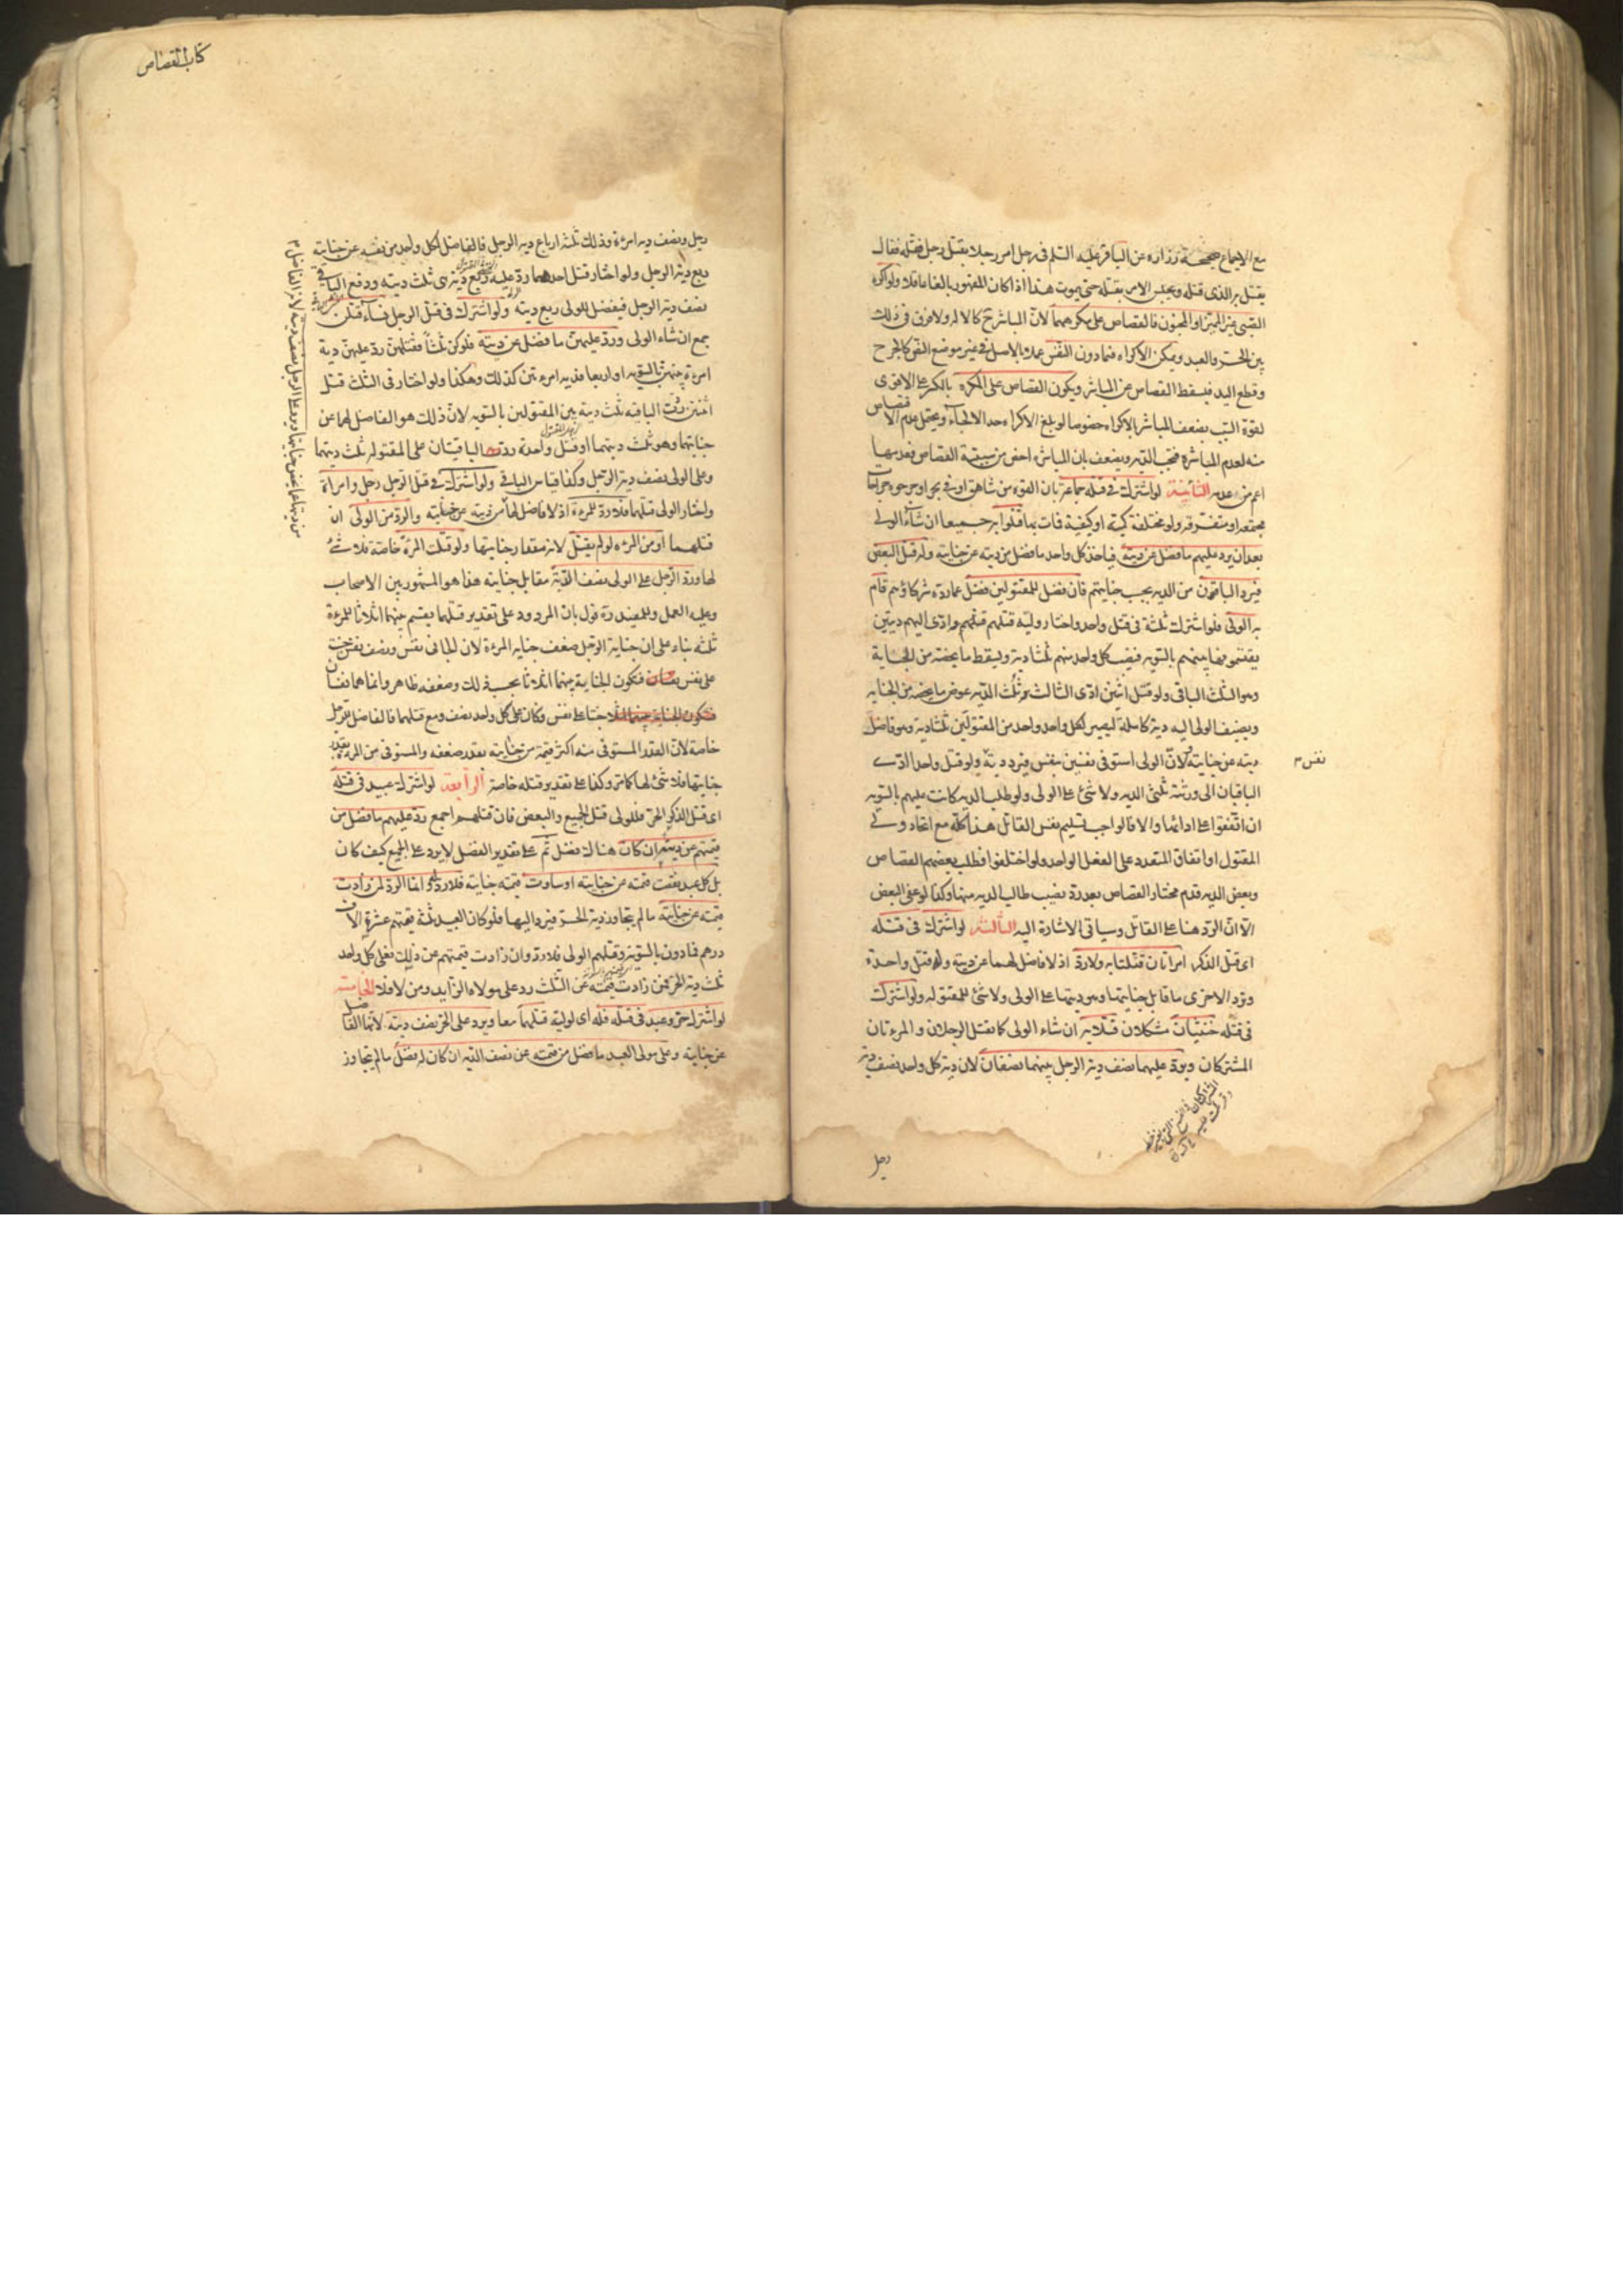 مع الاجماع صحيحة زرارة عن الباقر عليه السلم فى رجل امر رجلا بقتل رجل فقتله فقال
يقتل به الذى قتله ويحبس الامر بقتله حتى يموت هذا اذا كان المقهور بالغا عاقلا ولو اكره
الصبى غير المميز او المجنون فالقصاص على مكرههما لان المباشر ح كالاله ولا فرق فى ذلك
بين الحر والعبد ويمكن الاكراه فيما دون النفس عملا بالاصل فى غير موضع النص كالجرح
وقطع اليد فيسقط القصاص عن المباشر ويكون القصاص على المكره بالكسر على الاقوى
لقوة السبب بضعف المباشر بالاكراه خصوصا لو بلغ الاكراه حد الالجاء ويحتمل عدم الاقتصاص
منه لعدم المباشرة فتجب الديه ويضعف بان المباشرة اخص من سببية القصاص فعدمها
اعم من عدمه الثانية لو اشترك فى قتله جماعة بان القوه من شاهق او فى بحر او جرحوه جراحات
مجتمعه او متفرقه ولو مختلفة كمية او كيفية فمات بها قتلوا به جميعا ان شاء الولى
بعد ان يرد عليهم ما فضل عن ديته فياخذ كل واحد ما فضل من ديته عن جنايته وله قتل البعض
فيرد الباقون من الديه بحسب جنايتهم فان فضل للمقتولين فضل عما رده شركاؤهم قام
به الولى فلو اشترك ثلثة فى قتل واحد واختار وليه قتلهم قتلهم وادى اليهم ديتين
يقتسمونها بينهم بالسويه فنصيب كل واحد منهم ثلثا دية ويسقط ما يخصه من الجناية
وهو الثلث الباقى ولو قتل اثنين ادى الثالث ثلث الديه عوض ما يخصه من الجنايه
ويضيف الولى اليه دية كاملة ليصير لكل واحد واحد من المقتولين ثلثا ديه وهو فاضل
ديته عن جنايته ولان الولى استوفى نفسين بنفس فيرد دية نفس ولو قتل واحدا ادى
نفس م
الباقيان الى ورثته ثلثى الديه ولا شئ على الولى ولو طلب الديه كانت عليهم بالسويه
ان اتفقوا على ادائها والا فالواجب تسليم نفس القاتل هذا كله مع اتحاد ولى
المقتول او اتفاق المتعدد على الفعل الواحد ولو اختلفوا فطلب بعضهم القصاص
وبعض الديه قدم مختار القصاص بعد رد نصيب طالب الديه منها وكذا لو عفى البعض
الا ان الرد هنا على القاتل وسياتى الاشارة اليه الثالثة لو اشترك فى قتله
اى قتل الذكر امراتان قتلتا به ولا رد اذ لا فاضل لهما عن ديته وله قتل واحدة
وترد الاخرى ما قابل جنايتها وهو ديتها على الولى ولا شئ للمقتوله ولو اشترك
فى قتله خنثيان مشكلان قتلا به ان شاء الولى كما يقتل الرجلان والمرءتان
المشتركان ويرد عليهما نصف دية الرجل بينهما نصفان لان دية كل واحد نصف دية
رجل
كتاب القصاص
رجل ونصف ديه امرءة وذلك ثلثه ارباع ديه الرجل فالفاضل لكل واحد من نفسه عن جنايته
ربع دية الرجل ولو اختار قتل احدهما رد عليه ربع دية هى ثلث ديته ودفع الباقى
نصف دية الرجل فيفضل للولى ربع ديته ولو اشترك فى قتل الرجل نساء قتلن
جمع ان شاء الولى ورد عليهن ما فضل عن ديته فلو كن ثلثا فقتلهن رد عليهن دية
امرءة بينهن بالسويه او اربعا فديه امرءتين كذلك وهكذا ولو اختار فى الثلث قتل
اثنتين ردت الباقيه ثلث ديته بين المقتولين بالسويه لان ذلك هو الفاضل لهما عن
جنايتهما وهو ثلث ديتهما او قتل واحدة ردت الباقيتان على المقتوله ثلث ديتها
وعلى الولى نصف دية الرجل وكذا قياس الباقى ولو اشترك فى قتل الرجل رجل وامراة
واختار الولى قتلهما فلا رد للمرءة اذ لا فاضل لها من ديته عن جنايته والرد من الولى ان
قتلهما او من المرءه لو لم يقتل لانه مقدار جنايتها ولو قتلت المرءة خاصة فلا شئ
لها ورد الرجل على الولى نصف الدية مقابل جنايته هذا هو المشهور بين الاصحاب
وعليه العمل وللمفيد ره قول بان المردود على تقدير قتلهما يقسم بينهما اثلاثا للمرءة
ثلثه بناء على ان جناية الرجل ضعف جنايه المرءة لان الجانى نفس ونصف نفس جنت
على نفس فتكون الجناية بينهما اثلاثا بحسب ذلك وضعفه ظاهر وانما هما نفسان
جنتا على نفس وكان على كل واحد نصف ومع قتلهما فالفاضل للرجل
خاصة لان القدر المستوفى منه اكثر قيمة من جنايته بقدر ضعفه والمستوفى من المرءة بقدر
جنايتها فلا شئ لها كما مر وكذا على تقدير قتله خاصة الرابعة لو اشترك عبيد فى قتله
اى قتل الذكر الحر فللولى قتل الجميع والبعض فان قتلهم اجمع رد عليهم ما فضل من
قيمتهم عن ديته ان كان هناك فضل ثم على تقدير الفضل لا يرد على الجميع كيف كان
بل كل عبد نقصت قيمته عن جنايته او ساوت قيمته جنايته فلا رد له وانما الرد لمن زادت
قيمته عن جنايته ما لم يتجاوز دية الحر فيرد اليها فلو كان العبيد ثلثة قيمتهم عشرة الاف
درهم فما دون بالسويه وقتلهم الولى فلا رد وان زادت قيمتهم عن ذلك فعلى كل واحد
ثلث دية الحر فمن زادت قيمته عن الثلث رد على مولاه الزايد ومن لا فلا الخامسة
لو اشترك حر وعبد فى قتله فله اى لوليه قتلهما معا ويرد على الحر نصف ديته لانها الفاضل
عن جنايته وعلى مولى العبد ما فضل من قيمته عن نصف الديه ان كان له فضل ما لم يتجاوز